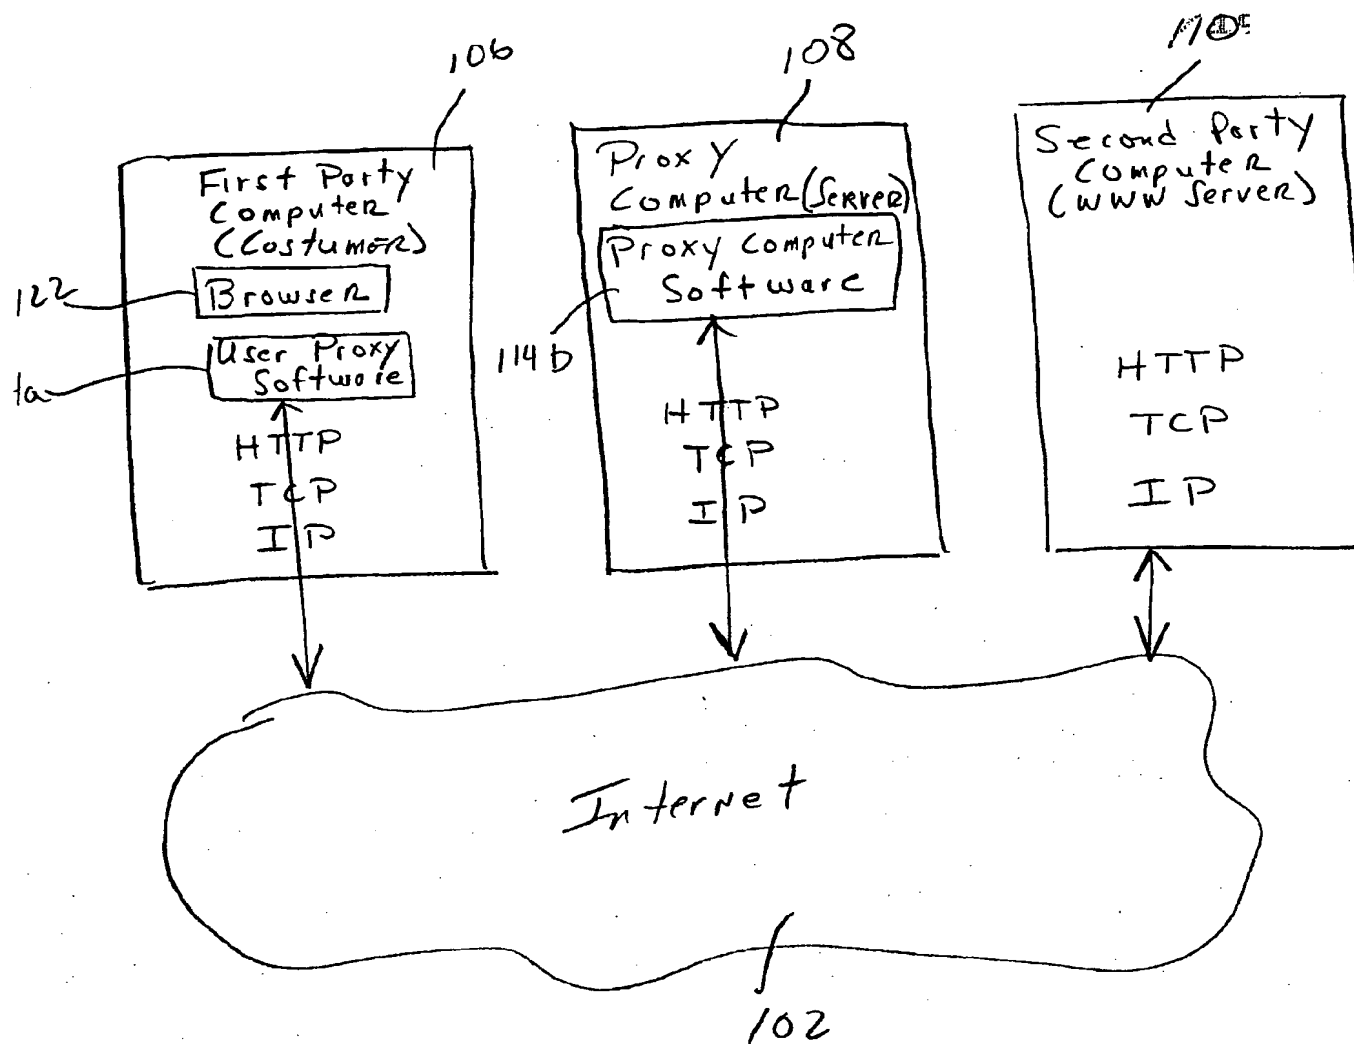 106
108
First Party
Computer
(Costumer)
122
Browser
1a
User Proxy
Software
HTTP
TCP
IP
Proxy
Computer (Server)
Proxy Computer
Software
114b
HTTP
TCP
IP
Second Party
Computer
(WWW Server)
HTTP
TCP
IP
Internet
102